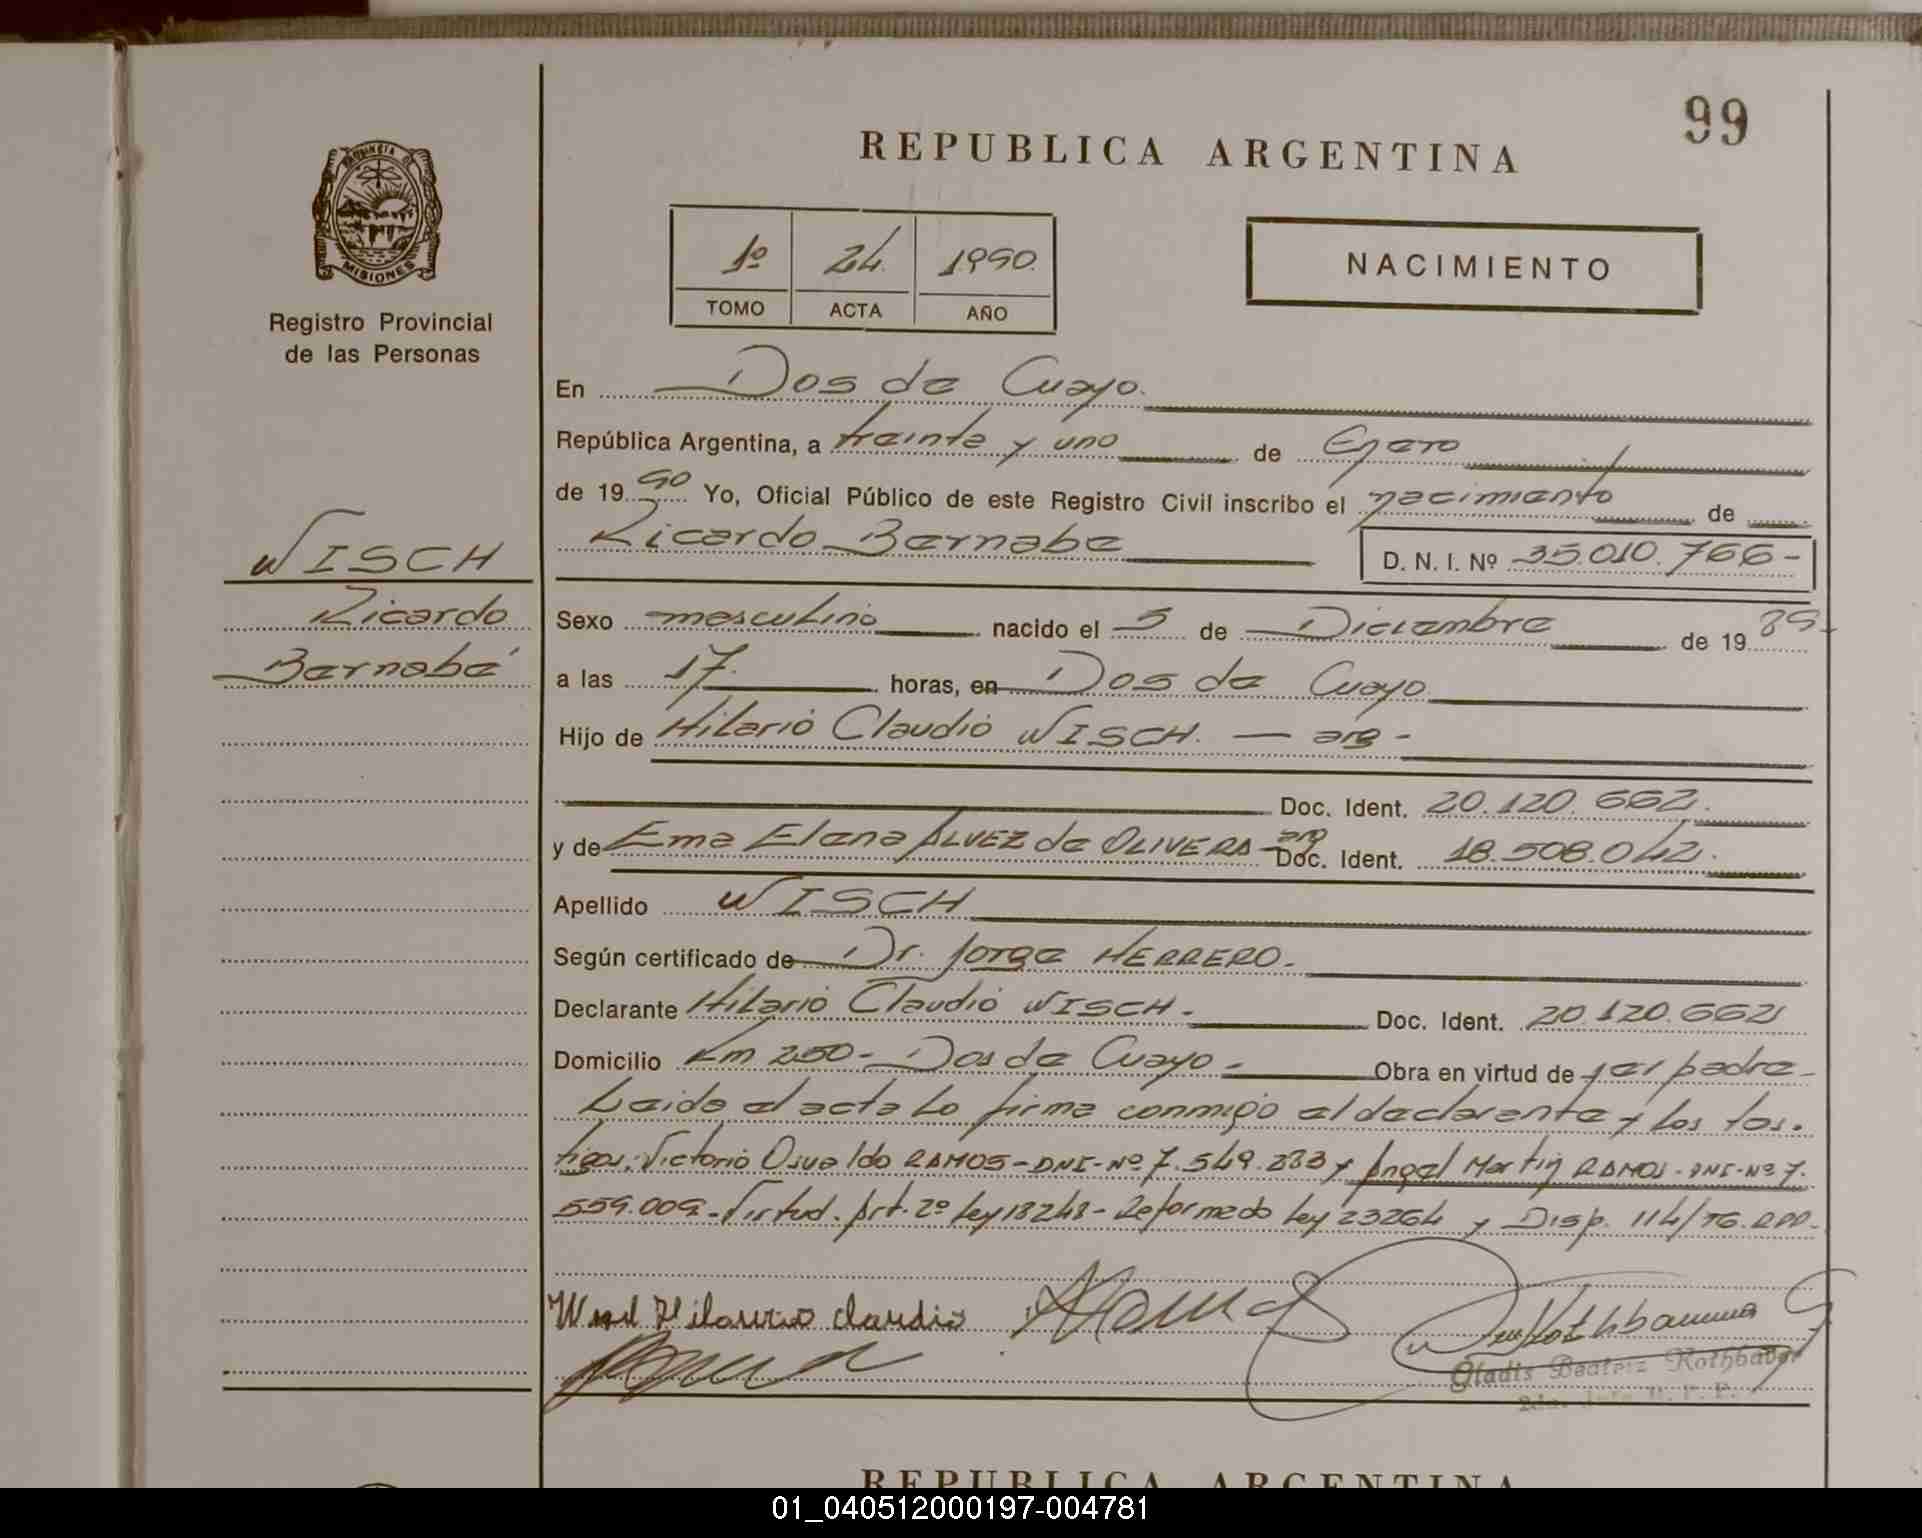 99
REPUBLICA ARGENTINA
PROVINCIA DE
MISIONES
Registro Provincial
de las Personas
1º 24. 1990.
TOMO ACTA AÑO
NACIMIENTO
En Dos de Mayo.
República Argentina, a treinta y uno de Enero
de 19 90 Yo, Oficial Público de este Registro Civil inscribo el nacimiento de
Ricardo Bernabe D. N. I. Nº 35.010.766-
WISCH
Ricardo
Bernabé
Sexo masculino nacido el 5 de Diciembre de 19 89-
a las 17. horas, en Dos de Mayo
Hijo de Hilario Claudio WISCH. — arg-
Doc. Ident. 20.120.662.
y de Ema Elena ALVEZ de OLIVERA - arg Doc. Ident. 18.508.042.
Apellido WISCH
Según certificado de Dr. Jorge HERRERO.-
Declarante Hilario Claudio WISCH.- Doc. Ident. 20.120.662
Domicilio Km 250- Dos de Mayo- Obra en virtud de ser padre-
Leida el acta lo firma conmigo el declarante y los tes.
tigos: Victorio Osvaldo RAMOS-DNI-Nº 7.549.283 y Angel Martin RAMOS-DNI-Nº 7.
559.009-Virtud. Art. 2º Ley 18248- Reformado Ley 23264 y Disp. 114/76.RPP.
Hilario Claudio
Gladis Beatriz Rothbauer
REPUBLICA ARGENTINA
01_040512000197-004781